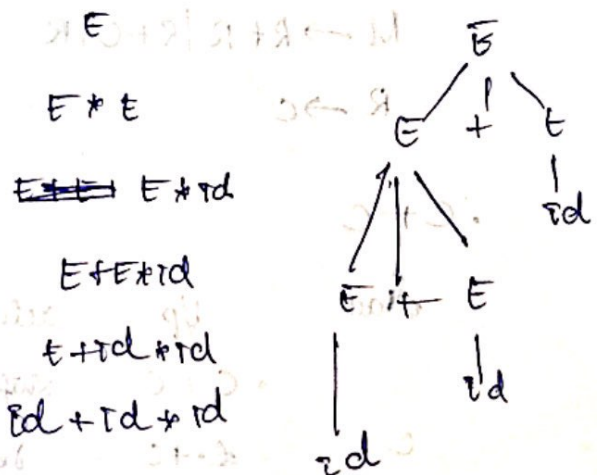 E
E * E
E * id
E + E * id
E + id * id
id + id * id
E
E + E
id
E + E
id
id